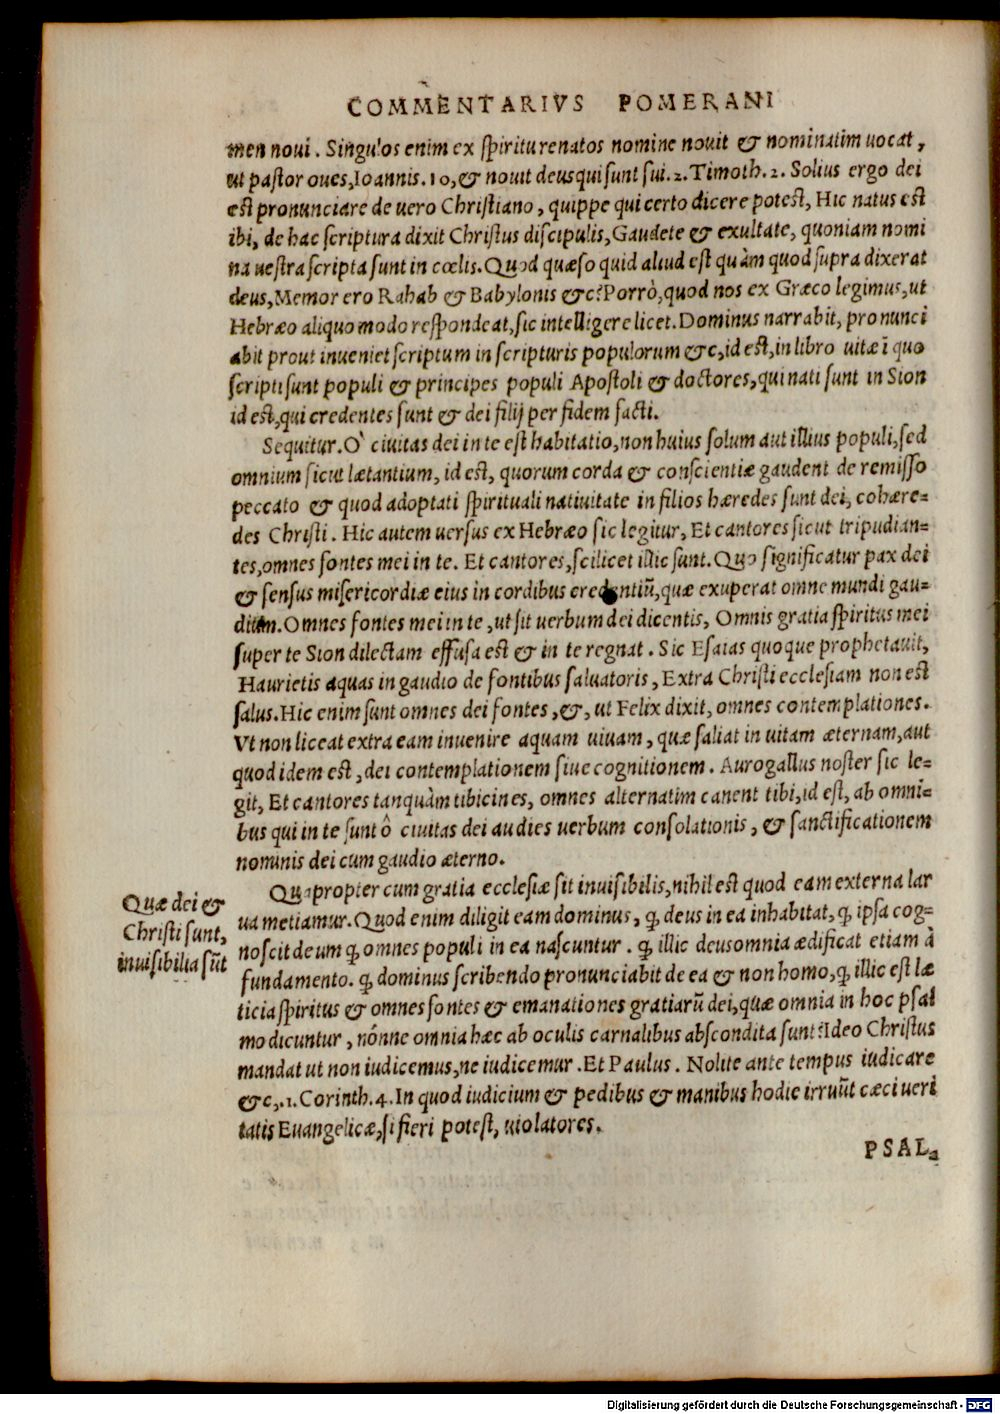 COMMENTARIVS POMERANI
men noui. Singulos enim ex spiritu renatos nomine nouit & nominatim uocat,
ut pastor oues, Ioannis. 10, & nouit deus qui sunt sui. 2. Timoth. 2. Solius ergo dei
est pronunciare de uero Christiano, quippe qui certo dicere potest, Hic natus est
ibi, de hac scriptura dixit Christus discipulis, Gaudete & exultate, quoniam nomi
na uestra scripta sunt in cœlis. Quod quæso quid aliud est quàm quod supra dixerat
deus, Memor ero Rahab & Babylonis &c? Porrò, quod nos ex Græco legimus, ut
Hebræo aliquo modo respondeat, sic intelligere licet. Dominus narrabit, pronunci
abit prout inueniet scriptum in scripturis populorum &c, id est, in libro uitæ ĩ quo
scripti sunt populi & principes populi Apostoli & doctores, qui nati sunt in Sion
id est, qui credentes sunt & dei filij per fidem facti.
Sequitur. O` ciuitas dei in te est habitatio, non huius solum aut illius populi, sed
omnium sicut lætantium, id est, quorum corda & conscientiæ gaudent de remisso
peccato & quod adoptati spirituali natiuitate in filios hæredes sunt dei, cohære-
des Christi. Hic autem uersus ex Hebræo sic legitur, Et cantores sicut tripudian-
tes, omnes fontes mei in te. Et cantores, scilicet illic sunt. Quo significatur pax dei
& sensus misericordiæ eius in cordibus credentiũ, quæ exuperat omne mundi gau-
dium. Omnes fontes mei in te, ut sit uerbum dei dicentis, Omnis gratia spiritus mei
super te Sion dilectam effusa est & in te regnat. Sic Esaias quoque prophetauit,
Haurietis aquas in gaudio de fontibus saluatoris, Extra Christi ecclesiam non est
salus. Hic enim sunt omnes dei fontes, &, ut Felix dixit, omnes contemplationes.
Vt non liceat extra eam inuenire aquam uiuam, quæ saliat in uitam æternam, aut
quod idem est, dei contemplationem siue cognitionem. Aurogallus noster sic le-
git, Et cantores tanquàm tibicines, omnes alternatim canent tibi, id est, ab omni-
bus qui in te sunt ô ciuitas dei audies uerbum consolationis, & sanctificationem
nominis dei cum gaudio æterno.
Quapropter cum gratia ecclesiæ sit inuisibilis, nihil est quod eam externa lar
ua metiamur. Quod enim diligit eam dominus, ꝙ, deus in ea inhabitat, ꝙ, ipsa cog-
noscit deum ꝙ, omnes populi in ea nascuntur. ꝙ illic deus omnia ædificat etiam à
fundamento. ꝙ dominus scribendo pronunciabit de ea & non homo, ꝙ, illic est læ
ticia spiritus & omnes fontes & emanationes gratiarũ dei, quæ omnia in hoc psal
mo dicuntur, nónne omnia hæc ab oculis carnalibus abscondita sunt? Ideo Christus
mandat ut non iudicemus, ne iudicemur. Et Paulus. Nolite ante tempus iudicare
&c,. 1. Corinth. 4. In quod iudicium & pedibus & manibus hodie irruũt cæci ueri
tatis Euangelicæ, si fieri potest, uiolatores.
Quæ dei &
Christi sunt,
inuisibilia sũt
PSAL.
Digitalisierung gefördert durch die Deutsche Forschungsgemeinschaft - DFG